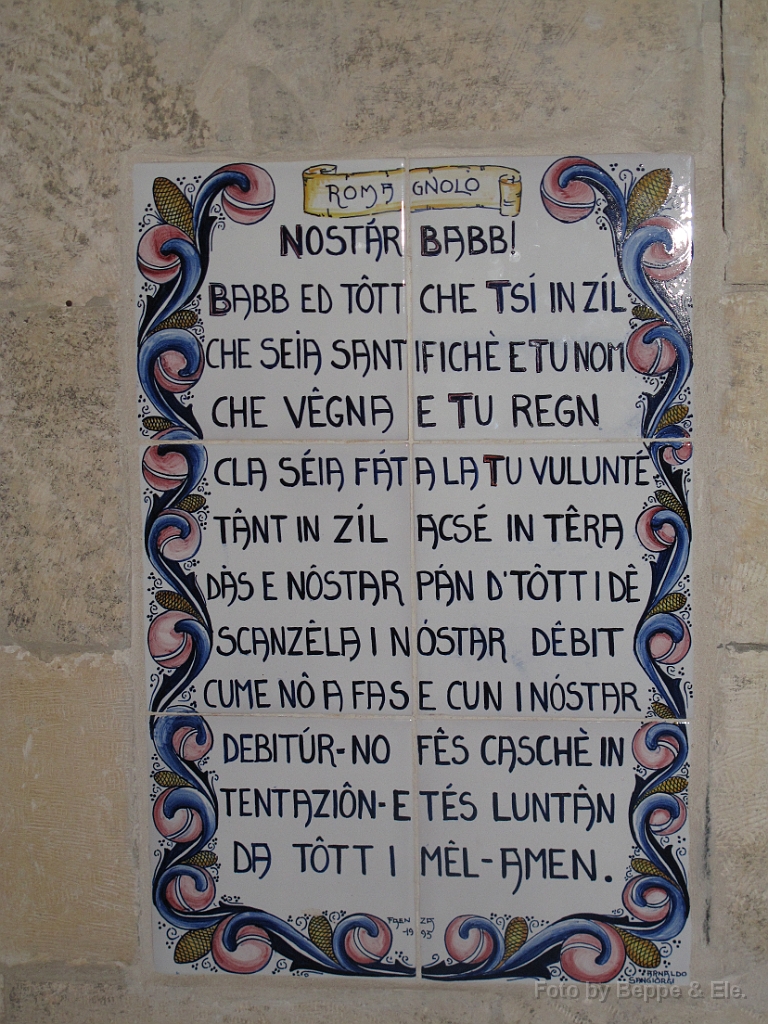 ROMAGNOLO
NOSTÁR BABB!
BABB ED TÔTT CHE TSÍ IN ZÍL
CHE SEIA SANTIFICHÈ E TU NOM
CHE VÊGNA E TU REGN
CLA SÉIA FÁTA LA TU VULUNTÉ
TÂNT IN ZÍL ACSÉ IN TÊRA
DÀS E NÓSTAR PÁN D'TÔTT I DÊ
SCANZÊLA I NÓSTAR DÊBIT
CUME NÔ A FASE CUN I NÓSTAR
DEBITÚR-NO FÊS CASCHÈ IN
TENTAZIÔN-E TÉS LUNTÂN
DA TÔTT I MÊL-AMEN.
FAENZA
-1995
ARNALDO
SANGIORGI
Foto by Beppe & Ele.